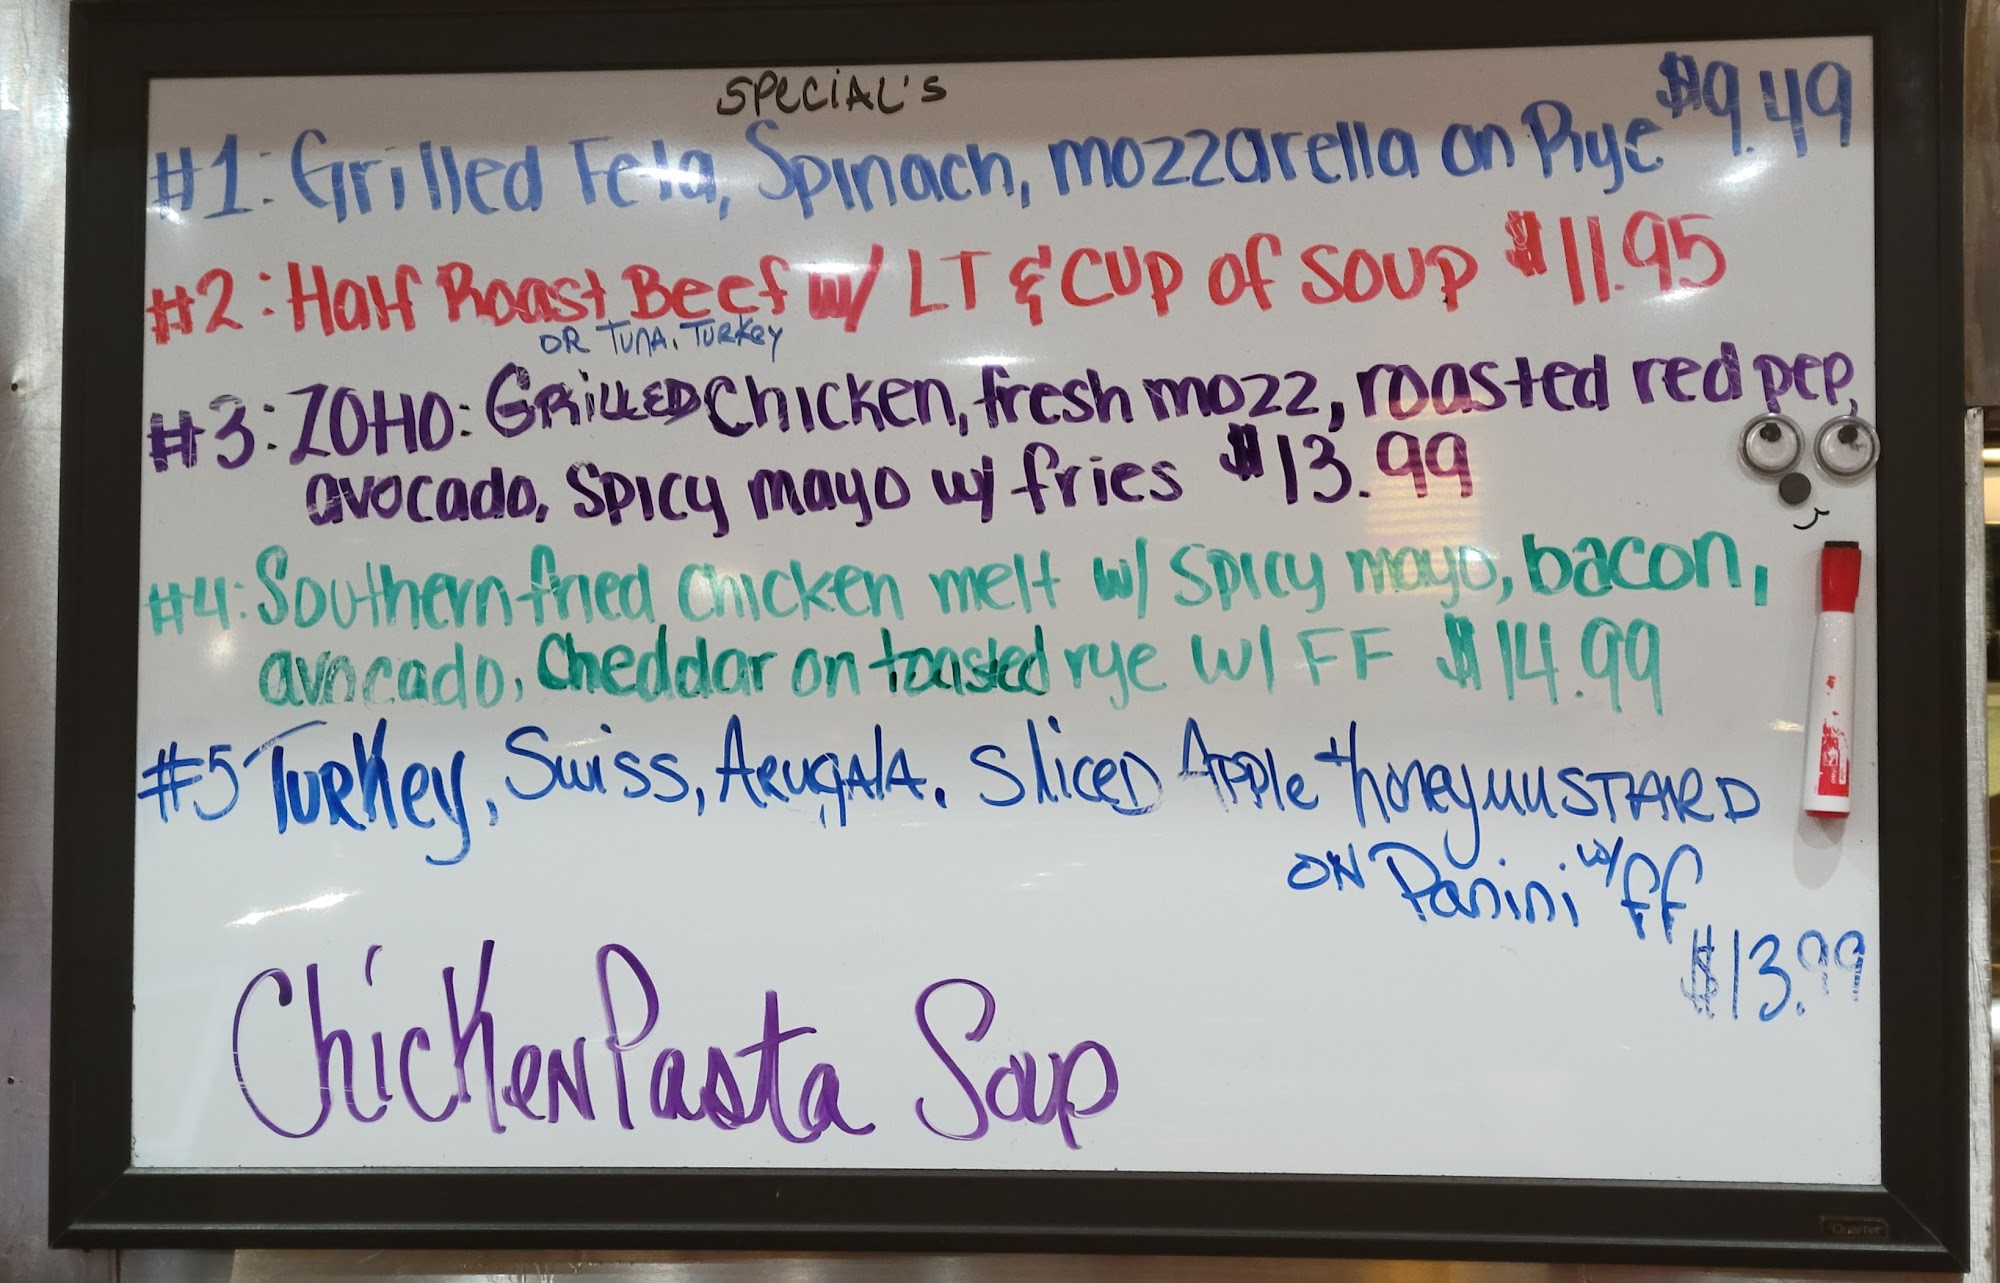 SPECIAL'S
#1: Grilled Feta, Spinach, mozzarella on Rye $9.49
#2: Half Roast Beef w/ LT & CUP OF SOUP $11.95
OR TUNA, TURKEY
#3: ZOHO: GRILLED Chicken, fresh mozz, roasted red pep,
avocado, spicy mayo w/ fries $13.99
#4: Southern fried chicken melt w/ spicy mayo, bacon,
avocado, cheddar on toasted rye w/ FF $14.99
#5 Turkey, Swiss, ARUGALA, sliced Apple + honeymuSTARD
ON Panini w/ FF
$13.99
Chicken Pasta Soup
Quartet